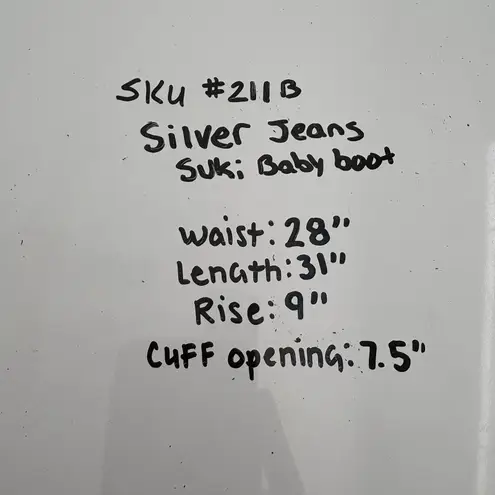 SKU #211B
Silver Jeans
Suki Baby boot
Waist: 28"
Length: 31"
Rise: 9"
Cuff opening: 7.5"